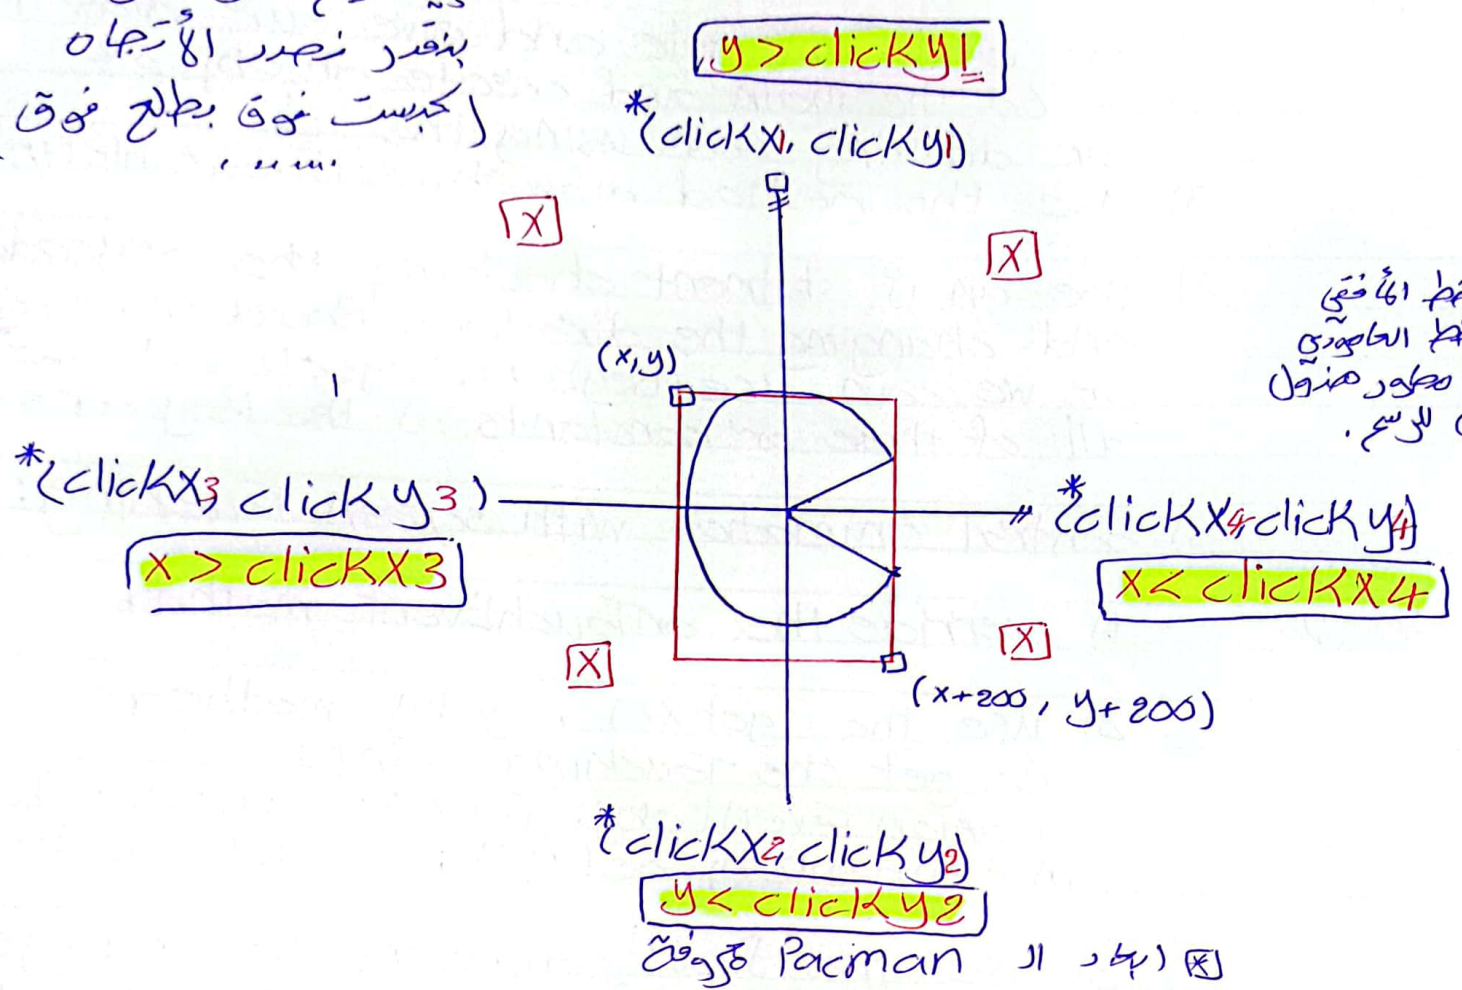 بنقدر نحدد الأتجاه
(كبست فوق بطلع فوق
......
y > clicky1
*(clickx1, clicky1)
X
X
الأفقي
العامودي
(x,y)
1
للرسم.
*(clickx3, clicky3)
x > clickx3
*(clickx4, clicky4)
x < clickx4
X
X
(x+200, y+200)
*(clickx2, clicky2)
y < clicky2
* ابعاد الـ Pacman معروفة